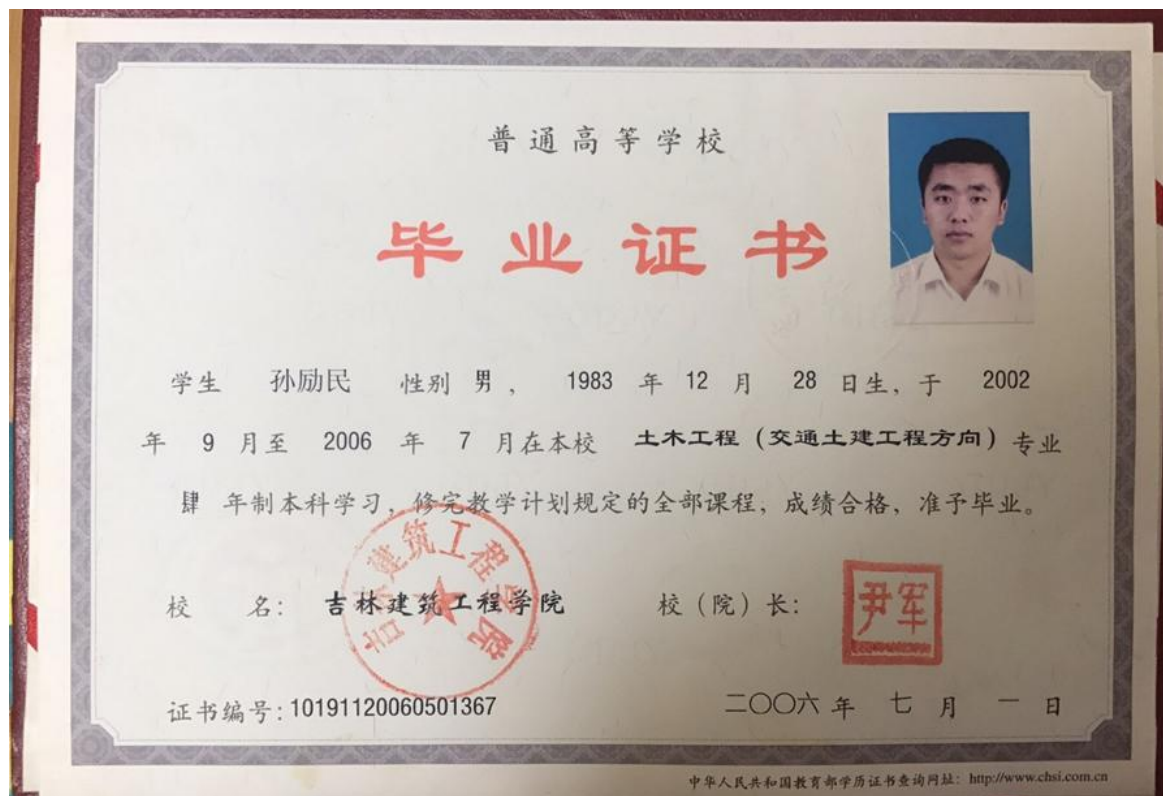 普通高等学校
毕业证书
学生 孙励民 性别 男， 1983 年 12 月 28 日生，于 2002
年 9 月至 2006 年 7 月在本校 土木工程（交通土建工程方向）专业
肆 年制本科学习，修完教学计划规定的全部课程，成绩合格，准予毕业。
吉林建筑工程学院
校 名： 吉林建筑工程学院 校（院）长： 尹军
证书编号：10191120060501367 二〇〇六年 七 月 一 日
中华人民共和国教育部学历证书查询网址：http://www.chsi.com.cn